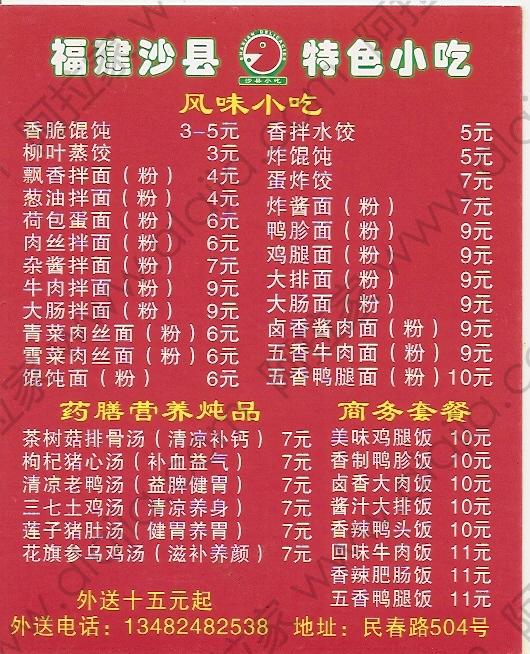 福建沙县 特色小吃
FUJIAN DELICACIES
沙县小吃
风味小吃
香脆馄饨 3-5元
柳叶蒸饺 3元
飘香拌面(粉) 4元
葱油拌面(粉) 4元
荷包蛋面(粉) 6元
肉丝拌面(粉) 6元
杂酱拌面(粉) 7元
牛肉拌面(粉) 9元
大肠拌面(粉) 9元
青菜肉丝面(粉) 6元
雪菜肉丝面(粉) 6元
馄饨面(粉) 6元
香拌水饺 5元
炸馄饨 5元
蛋炸饺 7元
炸酱面(粉) 7元
鸭胗面(粉) 9元
鸡腿面(粉) 9元
大排面(粉) 9元
大肠面(粉) 9元
卤香酱肉面(粉) 9元
五香牛肉面(粉) 9元
五香鸭腿面(粉) 10元
药膳营养炖品
茶树菇排骨汤(清凉补钙) 7元
枸杞猪心汤(补血益气) 7元
清凉老鸭汤(益脾健胃) 7元
三七土鸡汤(清凉养身) 7元
莲子猪肚汤(健胃养胃) 7元
花旗参乌鸡汤(滋补养颜) 7元
商务套餐
美味鸡腿饭 10元
香制鸭胗饭 10元
卤香大肉饭 10元
酱汁大排饭 10元
香辣鸭头饭 10元
回味牛肉饭 11元
香辣肥肠饭 11元
五香鸭腿饭 11元
外送十五元起
外送电话:13482482538 地址:民春路504号
阿拉家 www.alajia.com